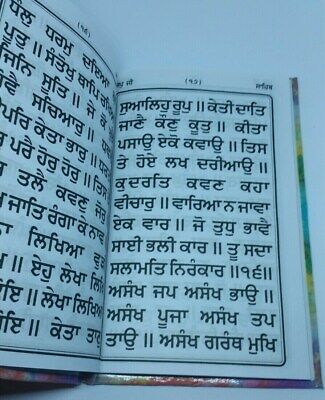 (੧੬)
ਧੌਲੁ ਧਰਮੁ ਦਇਆ
ਪੂਤੁ ॥ ਸੰਤੋਖੁ ਥਾਪਿ ਰ
ਜਿਨਿ ਸੂਤਿ ॥ ਜੇ ਕੋ
ਵੈ ਸਚਿਆਰੁ ॥
ਪਰਿ ਕੇਤਾ ਭਾਰੁ ॥
ਪਰੈ ਹੋਰੁ ਹੋਰੁ ॥ ਤਿਸ
ਤਲੈ ਕਵਣੁ
ਜਾਤਿ ਰੰਗਾ ਕੇ ਨਾਵ
ਲਿਖਿਆ ਵੁੜ
॥ ਏਹੁ ਲੇਖਾ ਲਿਖਿ
ਇ ॥ ਲੇਖਾ ਲਿਖਿਆ
ਇ ॥ ਕੇਤਾ ਤਾਣੁ
ਪੁ ਜੀ (੧੭) ਸਾਹਿਬ
ਸੁਆਲਿਹੁ ਰੂਪੁ ॥ ਕੇਤੀ ਦਾਤਿ
ਜਾਣੈ ਕੌਣੁ ਕੂਤੁ ॥ ਕੀਤਾ
ਪਸਾਉ ਏਕੋ ਕਵਾਉ ॥ ਤਿਸ
ਤੇ ਹੋਏ ਲਖ ਦਰੀਆਉ ॥
ਕੁਦਰਤਿ ਕਵਣ ਕਹਾ
ਵੀਚਾਰੁ ॥ ਵਾਰਿਆ ਨ ਜਾਵਾ
ਏਕ ਵਾਰ ॥ ਜੋ ਤੁਧੁ ਭਾਵੈ
ਸਾਈ ਭਲੀ ਕਾਰ ॥ ਤੂ ਸਦਾ
ਸਲਾਮਤਿ ਨਿਰੰਕਾਰ ॥੧੬॥
ਅਸੰਖ ਜਪ ਅਸੰਖ ਭਾਉ ॥
ਅਸੰਖ ਪੂਜਾ ਅਸੰਖ ਤਪ
ਤਾਉ ॥ ਅਸੰਖ ਗਰੰਥ ਮੁਖਿ